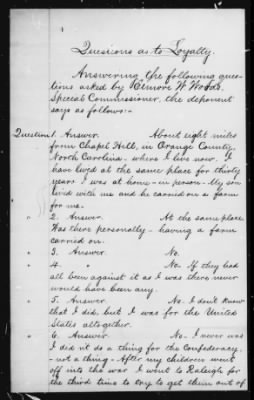 Quesions as to Loyalty.
Answering the following ques-
tions asked by Elmore W Woods.
Special Commissioner, the deponent
says as follows:-
Question 1. Answer. About eight miles
from Chapel Hill, in Orange County,
North Carolina - where I live now. I
have lived at the same place for thirty
years I was at home - in person - My son
lived with me and he carried on a farm
for me.
" 2. Answer. At the same place
Was there personally - having a farm
carried on.
" 3. Answer. No.
" 4. " No. If they had
all been against it as I was there never
would have been any.
" 5. Answer No - I don't know
that I did, but I was for the United
States altogether.
" 6. Answer. No - I never was
I did n't do a thing for the Confederacy
- not a thing - After my children went
off into the war I went to Raleigh for
the third time to try to get them out of